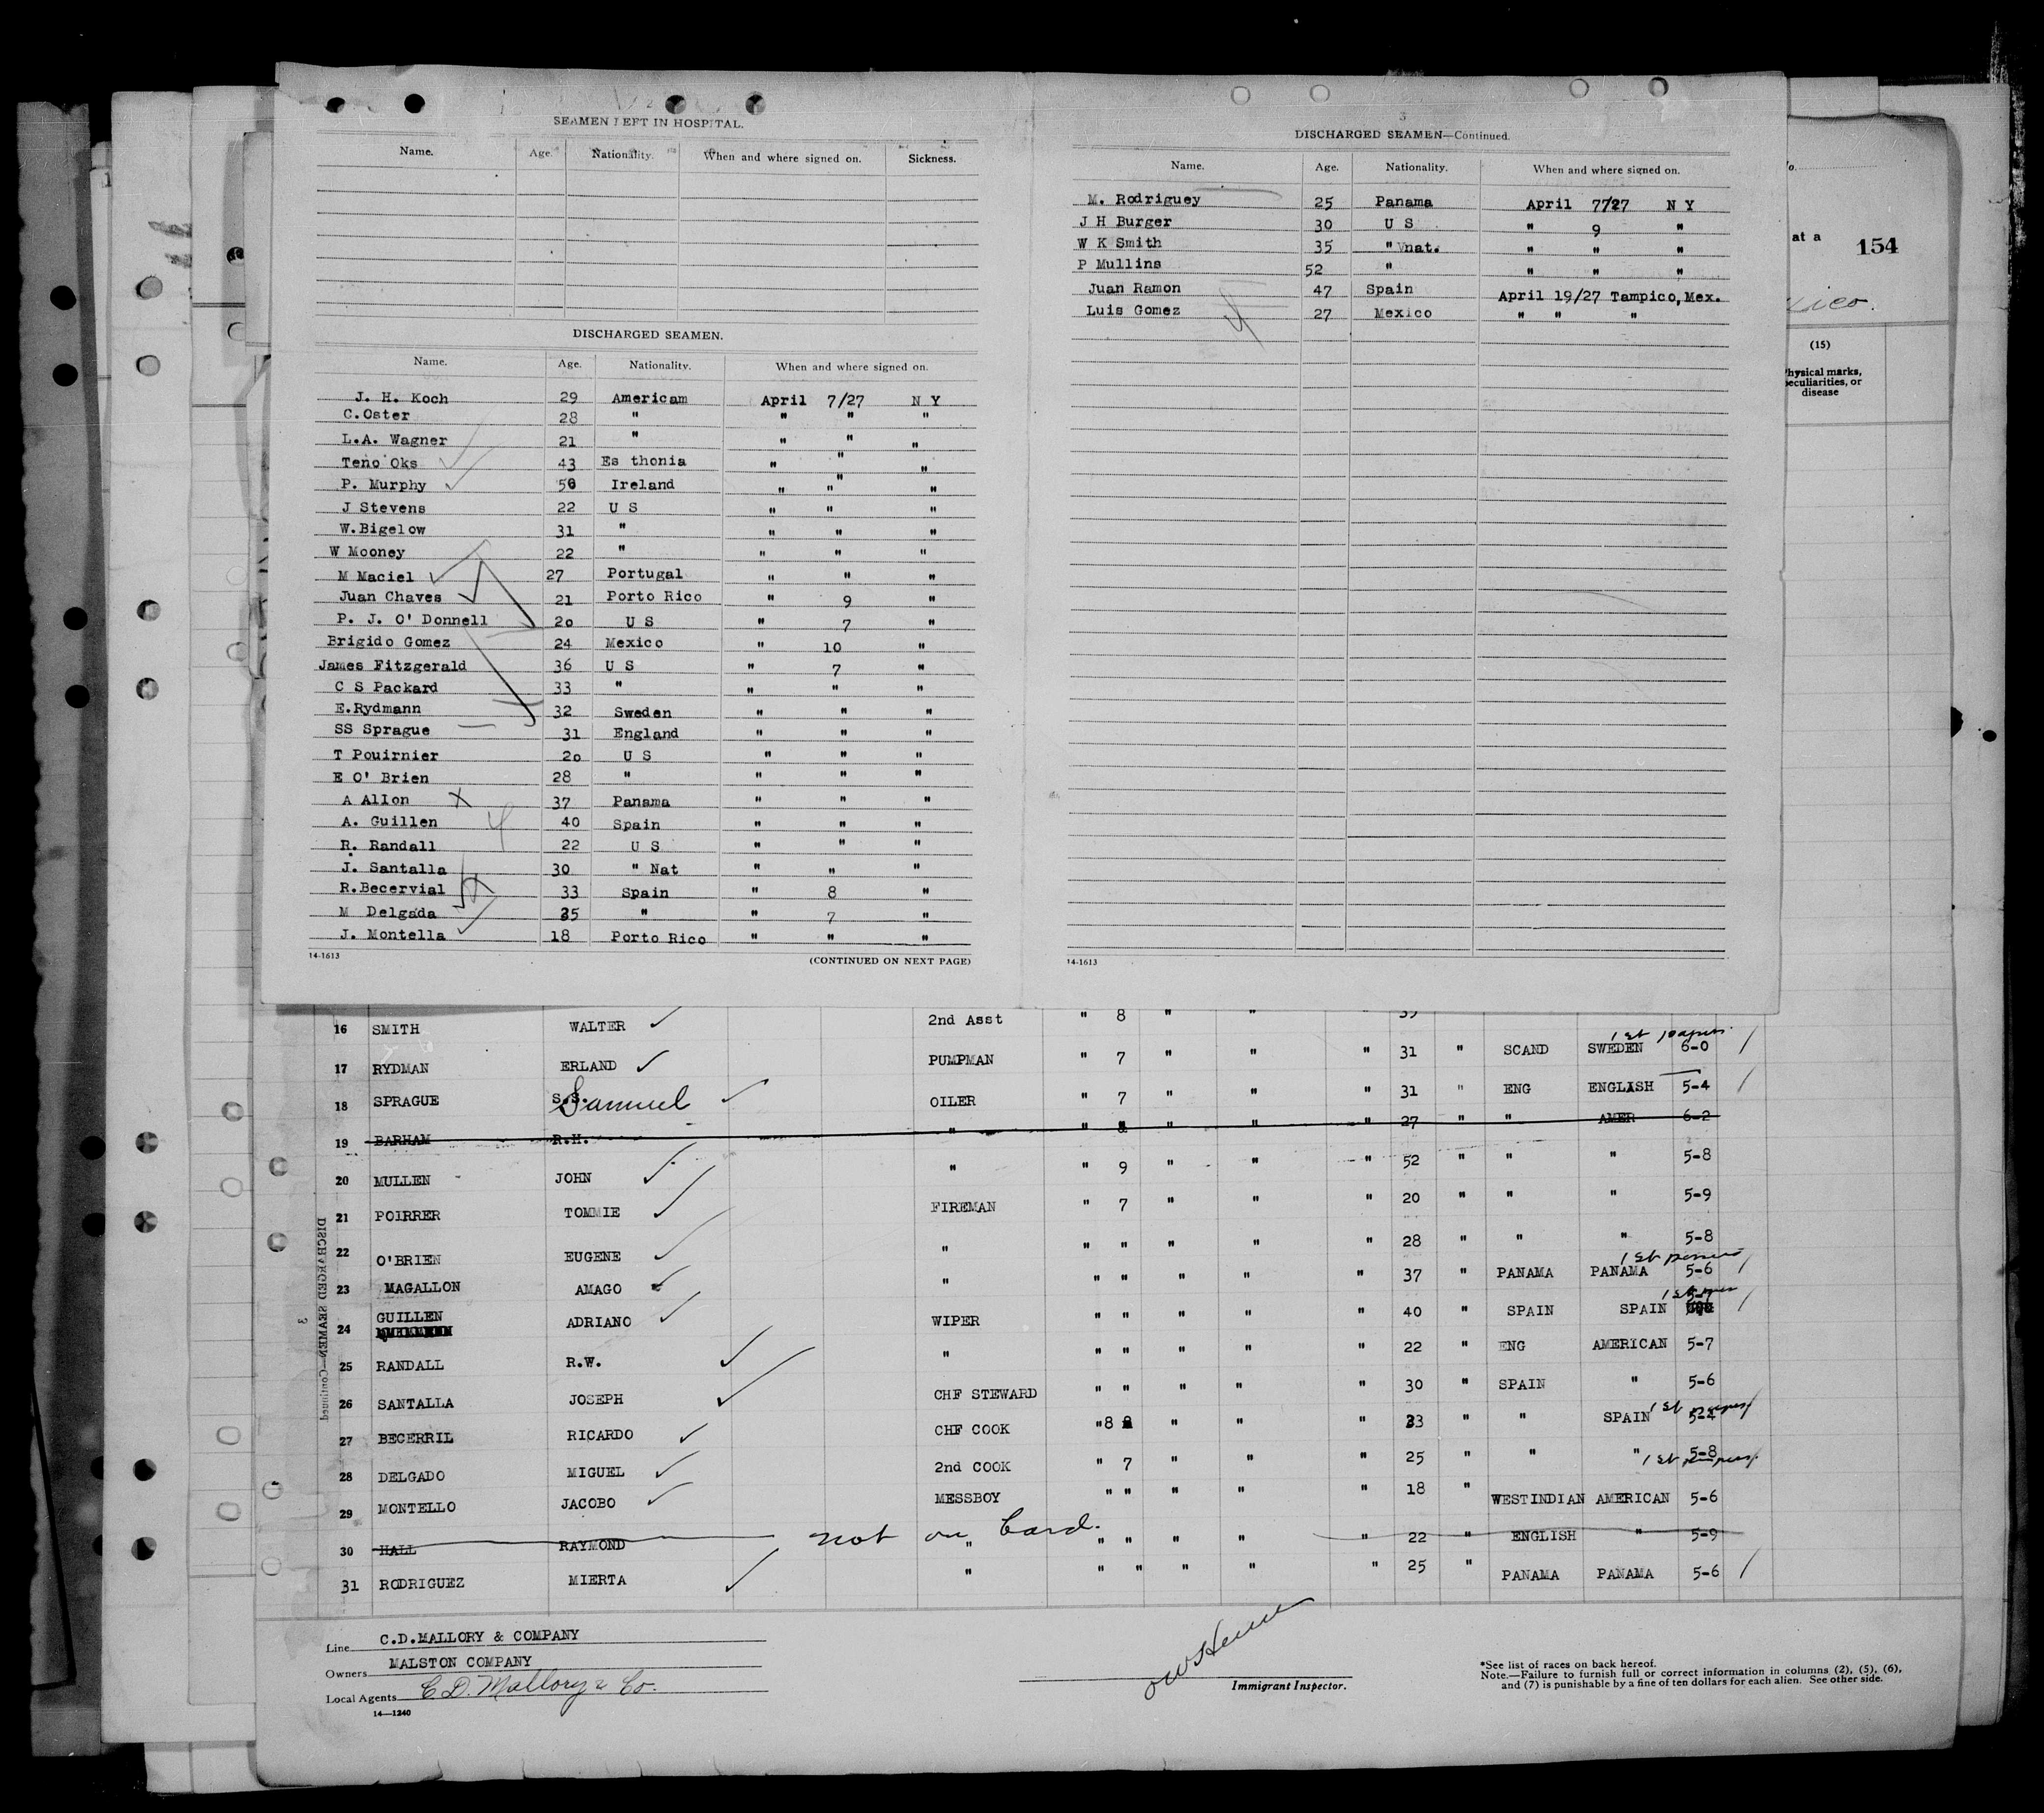 SEAMEN LEFT IN HOSPITAL.
Name. Age. Nationality. When and where signed on. Sickness.
DISCHARGED SEAMEN.
Name. Age. Nationality. When and where signed on.
J. H. Koch 29 Americam April 7/27 N Y
C.Oster 28 " " " "
L.A. Wagner 21 " " " "
Teno Oks 43 Es thonia " " "
P. Murphy 50 Ireland " " " "
J Stevens 22 U S " " "
W.Bigelow 31 " " " "
W Mooney 22 " " " "
M Maciel 27 Portugal " " "
Juan Chaves 21 Porto Rico " 9 "
P. J. O' Donnell 20 U S " 7 "
Brigido Gomez 24 Mexico " 10 "
James Fitzgerald 36 U S " 7 "
C S Packard 33 " " " "
E.Rydmann 32 Sweden " " "
SS Sprague 31 England " " "
T Pouirnier 20 U S " " "
E O' Brien 28 " " " "
A Allon X 37 Panama " " "
A. Guillen 40 Spain " " "
R. Randall 22 U S " " "
J. Santalla 30 " Nat " " "
R.Becervial 33 Spain " 8 "
M Delgada 35 " " 7 "
J. Montella 18 Porto Rico " " "
14-1613 (CONTINUED ON NEXT PAGE)
3
DISCHARGED SEAMEN—Continued.
Name. Age. Nationality. When and where signed on.
M. Rodriguey 25 Panama April 7/27 N Y
J H Burger 30 U S " 9 "
W K Smith 35 " nat. " " "
P Mullins 52 " " " "
Juan Ramon 47 Spain April 19/27 Tampico, Mex.
Luis Gomez 27 Mexico " " "
14-1613
at a 154
(15)
Physical marks, peculiarities, or disease
16 SMITH WALTER 2nd Asst " 8 " " 35
17 RYDMAN ERLAND PUMPMAN " 7 " " " 31 " SCAND SWEDEN 1st papers 6-0
18 SPRAGUE S.S. Samuel OILER " 7 " " " 31 " ENG ENGLISH 5-4
19 BARHAM R.H. " " 8 " " " 27 " " AMER 6-2
20 MULLEN JOHN " " 9 " " " 52 " " " 5-8
21 POIRRER TOMMIE FIREMAN " 7 " " " 20 " " " 5-9
22 O'BRIEN EUGENE " " " " " " 28 " " " 5-8
23 MAGALLON AMAGO " " " " " " 37 " PANAMA PANAMA 1st papers 5-6
24 GUILLEN ADRIANO WIPER " " " " " 40 " SPAIN SPAIN
25 RANDALL R.W. " " " " " " 22 " ENG AMERICAN 5-7
26 SANTALLA JOSEPH CHF STEWARD " " " " " 30 " SPAIN " 5-6
27 BECERRIL RICARDO CHF COOK " 8 " " " 33 " " SPAIN 1st papers 5-4
28 DELGADO MIGUEL 2nd COOK " 7 " " " 25 " " " 5-8 1st papers
29 MONTELLO JACOBO MESSBOY " " " " " 18 " WESTINDIAN AMERICAN 5-6
30 HALL RAYMOND not on board. " " " " " " 22 " ENGLISH " 5-9
31 RODRIGUEZ MIERTA " " " " " " 25 " PANAMA PANAMA 5-6
DISCHARGED SEAMEN—Continued
3
Line C.D.MALLORY & COMPANY
Owners MALSTON COMPANY
Local Agents C.D. Mallory & Co.
14—1240
Immigrant Inspector.
*See list of races on back hereof.
Note.—Failure to furnish full or correct information in columns (2), (5), (6),
and (7) is punishable by a fine of ten dollars for each alien. See other side.